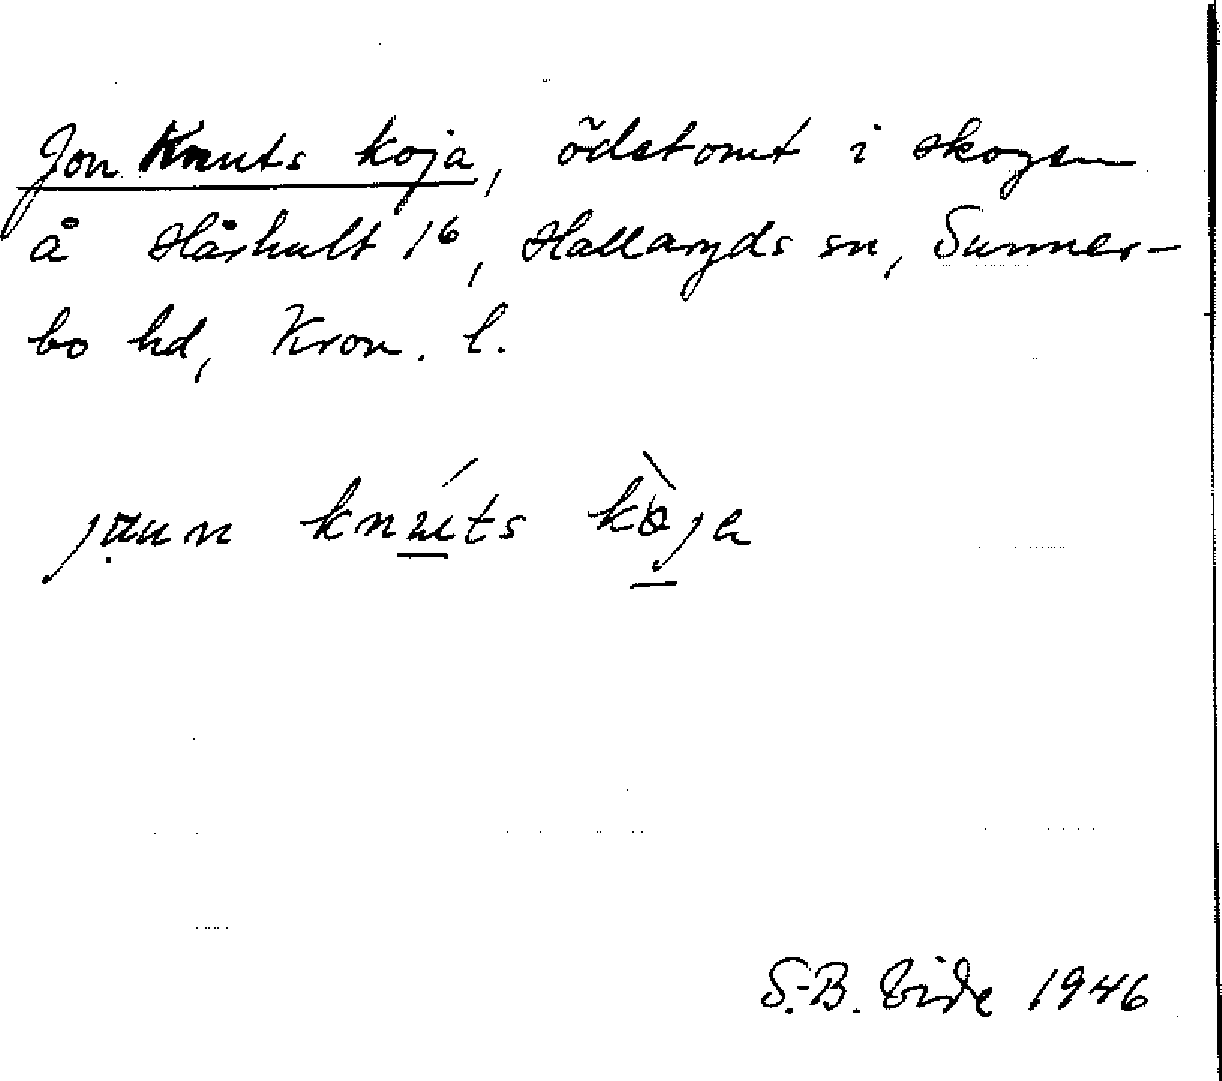 Jon Knuts koja, ödetomt i skogen
å Hårhult 1⁶, Hallaryds sn, Sunner-
bo hd, Kron. l.
knuts koja
S.-B. Vide 1946